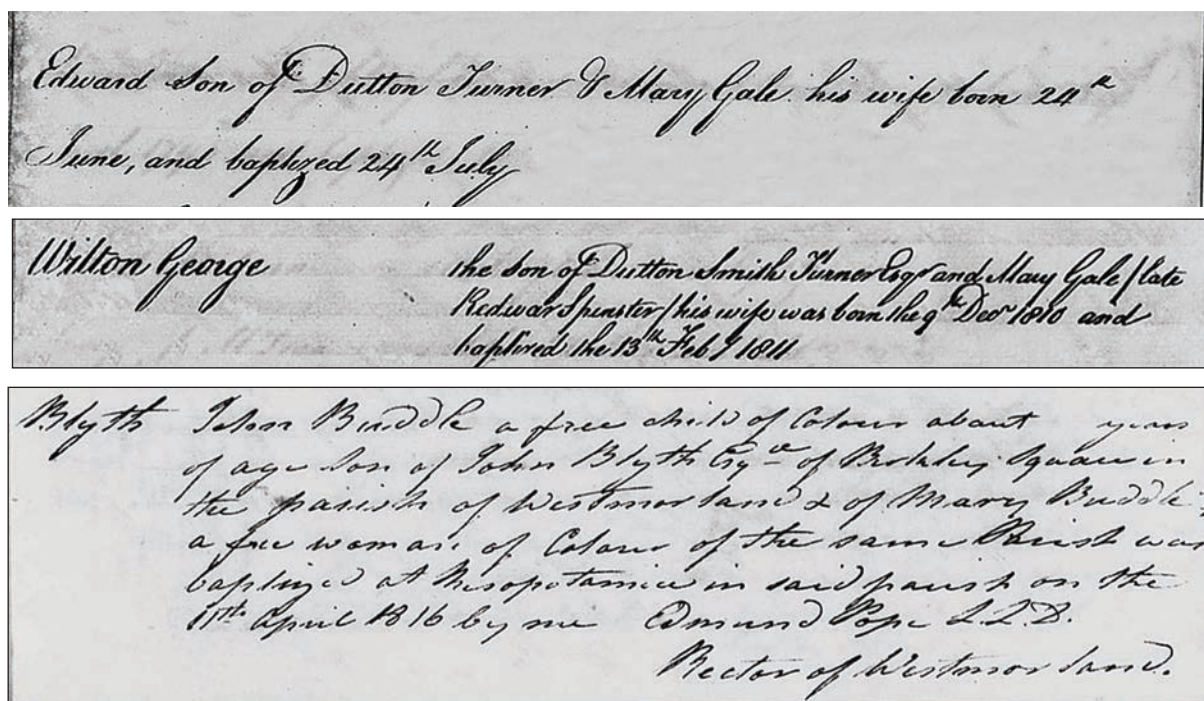 Edward Son of Dutton Turner & Mary Gale his wife born 24th
June, and baptized 24th July
Wilton George the Son of Dutton Smith Turner Esqr and Mary Gale / late
Redwar Spinster / his wife was born the 9th Decr 1810 and
baptized the 13th Feby 1811
Blyth John Buddle a free child of Colour about years
of age Son of John Blyth Esqre of Berkley Square in
the parish of Westmorland & of Mary Buddle
a free woman of Colour of the same Parish was
baptized at Mesopotamia in said parish on the
11th April 1816 by me Edmund Pope L.L.D.
Rector of Westmorland.